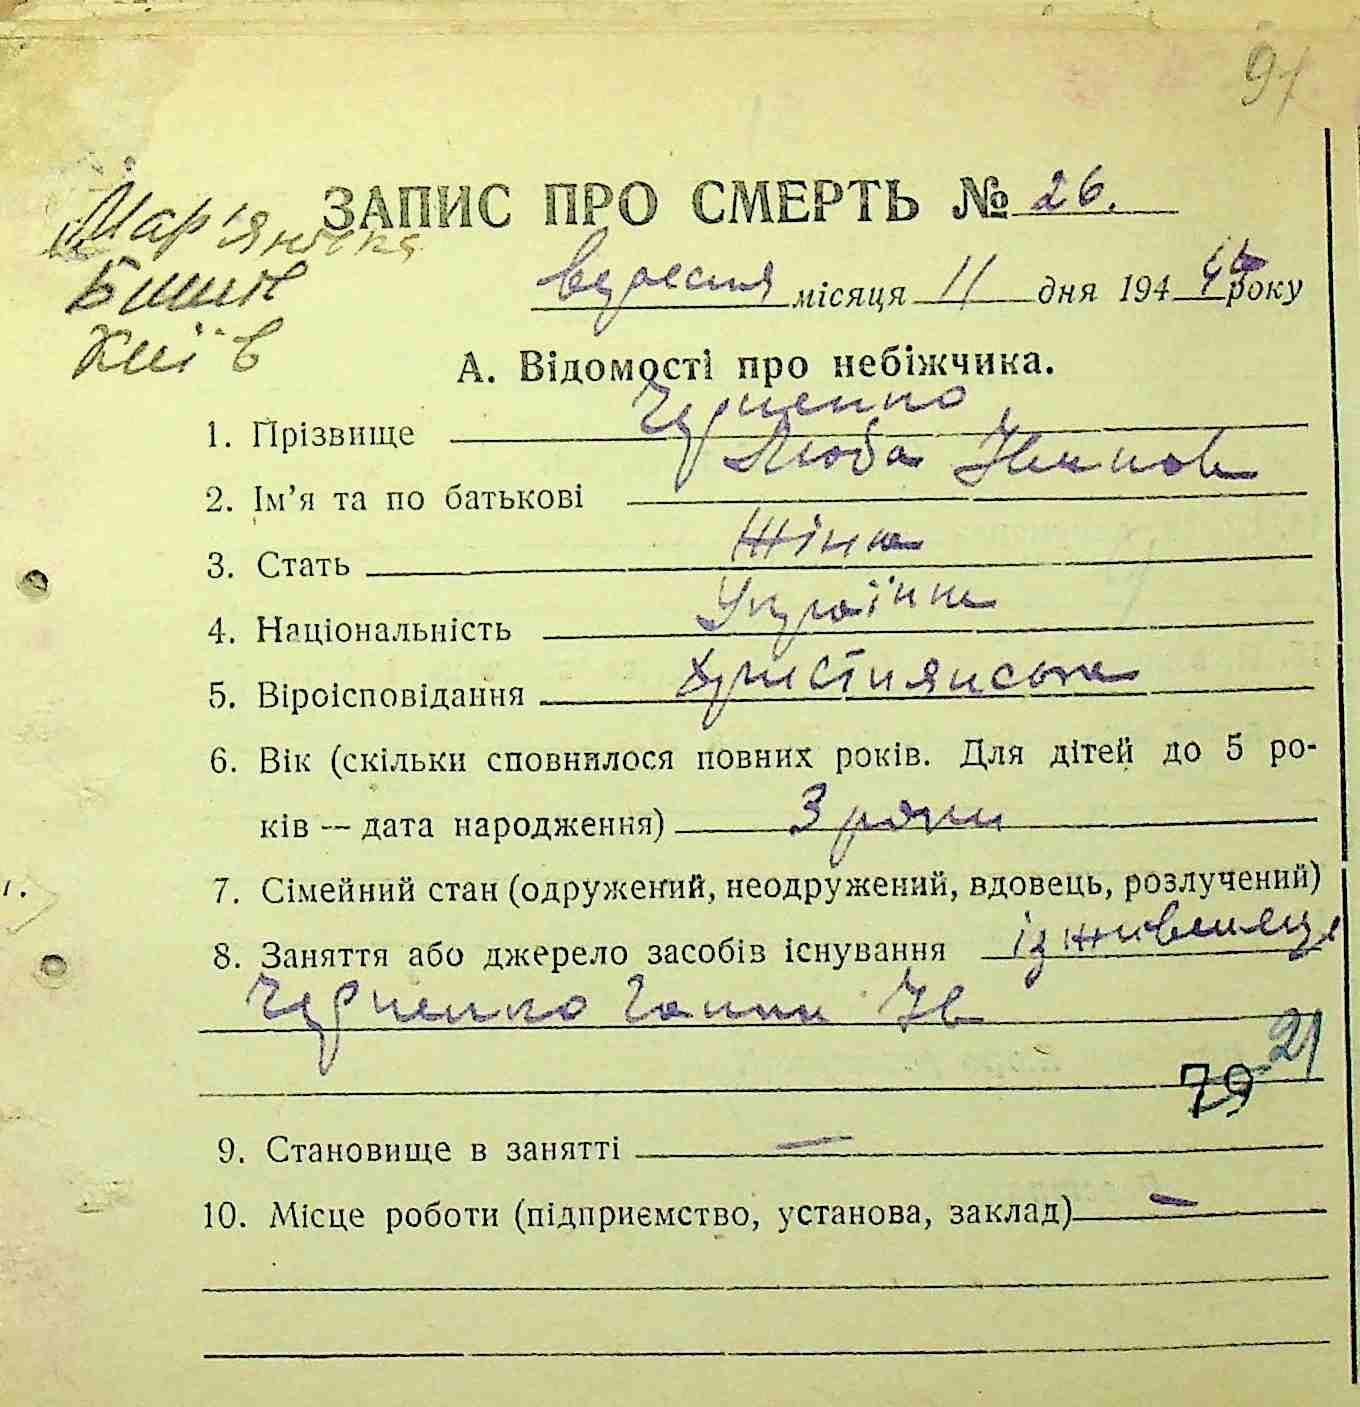 91
ЗАПИС ПРО СМЕРТЬ № 26.
Мар'янівка
Бишів
Київ
вересня місяця 11 дня 194 року
А. Відомості про небіжчика.
1. Прізвище Черненко
2. Ім'я та по батькові Люба Іванов
3. Стать Жіноч
4. Національність Українк
5. Віроісповідання християнська
6. Вік (скільки сповнилося повних років. Для дітей до 5 ро-
ків — дата народження) 3 роки
7. Сімейний стан (одружений, неодружений, вдовець, розлучений)
8. Заняття або джерело засобів існування
Черненко Ганни Ів
21
79
9. Становище в занятті —
10. Місце роботи (підприємство, установа, заклад) —